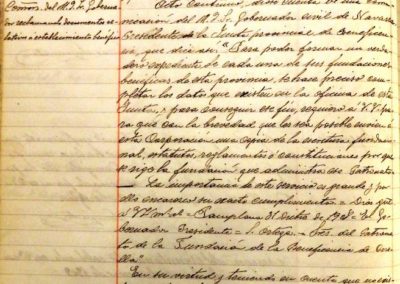 Comón. del M. I. Sr. Goberna
reclamando documentos
establecimiento
Acto continuo, dióse cuenta de una comu-
nicación del M. I. Sr. Gobernador civil de Navarra
Presidente de la Junta provincial de Beneficen-
cia, que dice así: "Para poder formar un verda-
dero expediente de cada una de sus fundaciones
benéficas de esta provincia, se hace preciso com-
pletar los datos que existen en la oficina de esta
Junta, y para conseguir este fin, requiero á V. V. pa-
ra que con la brevedad que les sea posible envien á
esta Corporación una copia de la escritura fundacio-
nal, estatutos, reglamentos ó constituciones por que
se rige la fundación que administra ese Patronato
La importancia de este servicio es grande y por
ello encarezco su exacto cumplimiento = Dios gue
á VV m. a. = Pamplona 31 Octubre de = El Go-
bernador Presidente = Ortega = Pres. del Patrona-
to de la Fundación de la Beneficencia de
lla".
En su virtud y teniendo en cuenta que